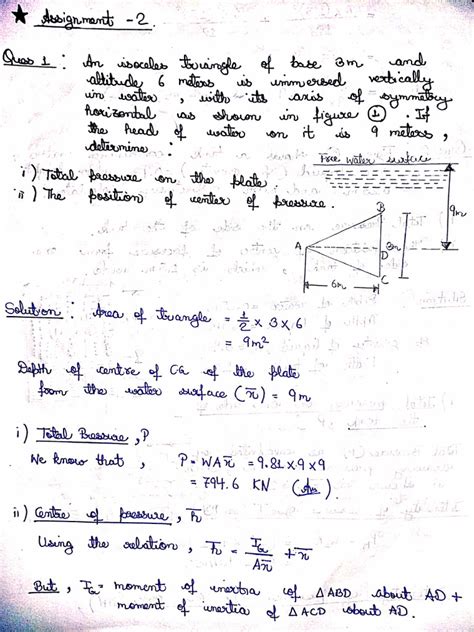 ★ Assignment -2.
Ques 1 : An isoceles triangle of base 3m and
altitude 6 meters is immersed vertically
in water, with its axis of symmetry
horizontal as shown in figure ①. If
the head of water on it is 9 meters,
determine :
Free water surface
i) Total pressure on the plate.
ii) The position of center of pressure.
9m
B
A
3m
D
C
6m
Solution : Area of triangle = 1/2 × 3 × 6
= 9m²
Depth of centre of CG of the plate
from the water surface (x̄) = 9m
i) Total Pressure, P
We know that, P = WAx̄ = 9.81 × 9 × 9
= 794.6 KN (Ans)
ii) Centre of pressure, h̄
Using the relation, h̄ = I_G/Ax̄ + x̄
But, I_G = moment of inertia of △ABD about AD +
moment of inertia of △ACD about AD.